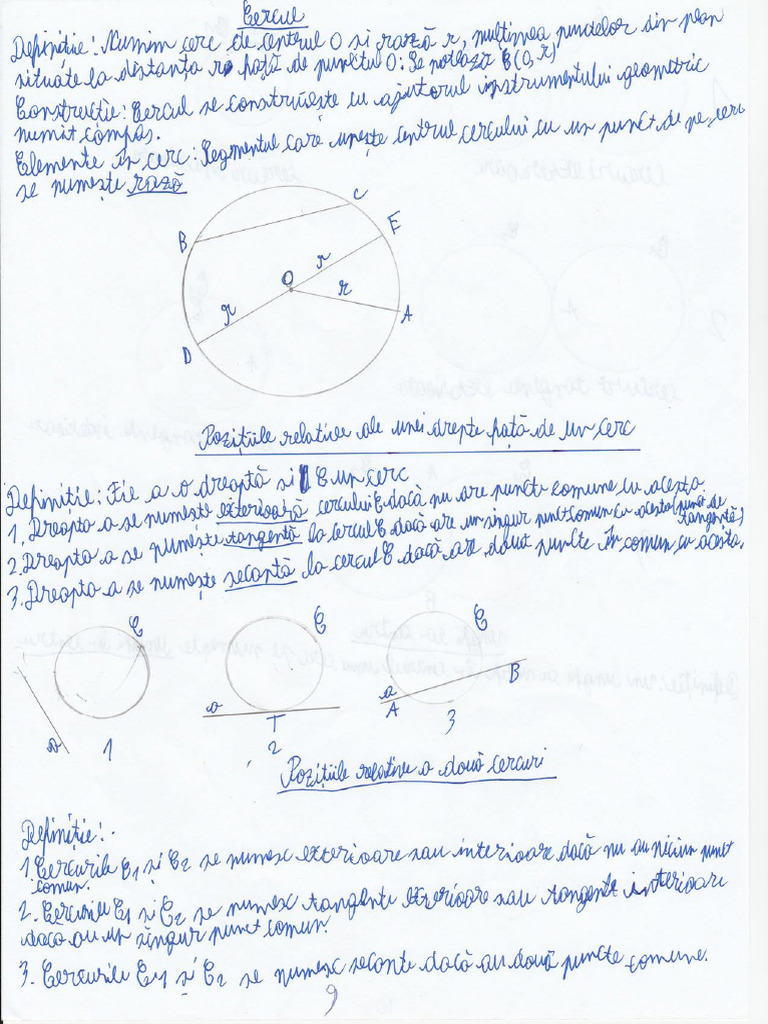 Cercul
Definiție: Numim cerc de centrul O si rază r, mulținea punctelor din plan
situate la distanța r față de punctul O: Se notează C(O, r)
Construcție: Cercul se construiește cu ajutorul instrumentului geometric
numit compas.
Elemente în cerc: Segmentul care unește centrul cercului cu un punct de pe cerc
se numește rază
C
E
B
O
r
r
A
r
D
Pozițiile relative ale unei drepte față de un cerc
Definitie: Fie a o dreaptă si C un cerc
1. Dreapta a se numește exterioară cercului C dacă nu are puncte comune cu acesta.
2. Dreapta a se numește tangentă la cercul C dacă are un singur punct comun cu acesta (punct de
tangență)
3. Dreapta a se numește secantă la cercul C dacă are două puncte în comun cu acesta.
C
C
C
a
1
a
T
2
a
A
B
3
Pozițiile relative a două cercuri
Definiție:
1. Cercurile C1 și C2 se numesc exterioare sau interioare dacă nu au niciun punct
comun.
2. Cercurile C1 si C2 se numesc tangente exterioare sau tangente interioare
dacă au un singur punct comun.
3. Cercurile C1 și C2 se numesc secante dacă au două puncte comune.
9